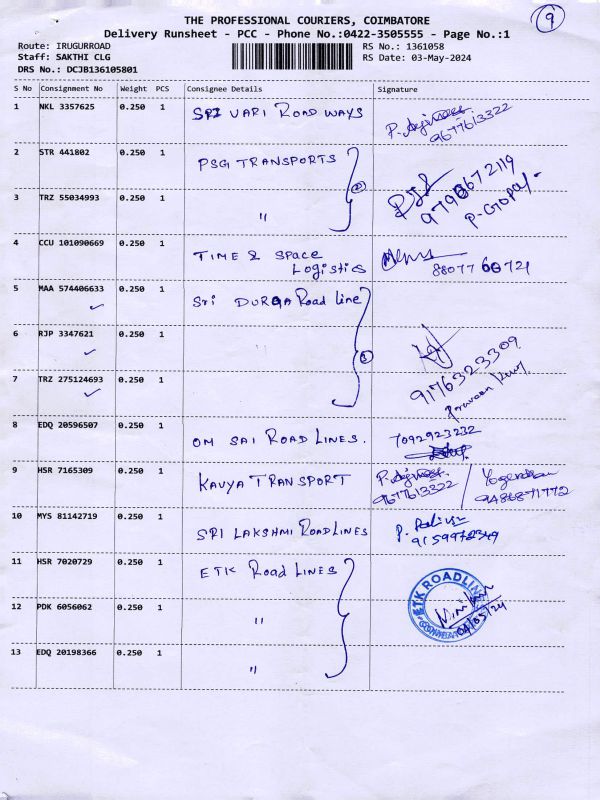 9
THE PROFESSIONAL COURIERS, COIMBATORE
Delivery Runsheet - PCC - Phone No.:0422-3505555 - Page No.:1
Route: IRUGURROAD
RS No.: 1361058
Staff: SAKTHI CLG
RS Date: 03-May-2024
DRS No.: DCJB136105801
S No Consignment No Weight PCS Consignee Details Signature
1 NKL 3357625 0.250 1 SRI VARI ROAD WAYS
9677613322
2 STR 441802 0.250 1 PSG TRANSPORTS
2
3 TRZ 55034993 0.250 1 "
P-GOPAL
4 CCU 101090669 0.250 1 TIME & SPACE
Logistics 8807760721
5 MAA 574406633 0.250 1 Sri DURGA Road Line
6 RJP 3347621 0.250 1 "
3
7 TRZ 275124693 0.250 1
9176323309
Praveen Kumar
8 EDQ 20596507 0.250 1 OM SAI ROAD LINES. 7092923232
9 HSR 7165309 0.250 1 KAVYA TRANSPORT
9677613322 9486871772
10 MYS 81142719 0.250 1 SRI LAKSHMI ROADLINES
11 HSR 7020729 0.250 1 ETK Road LINES
ETK ROADLINES
12 PDK 6056062 0.250 1 "
04/05/24
13 EDQ 20198366 0.250 1 "